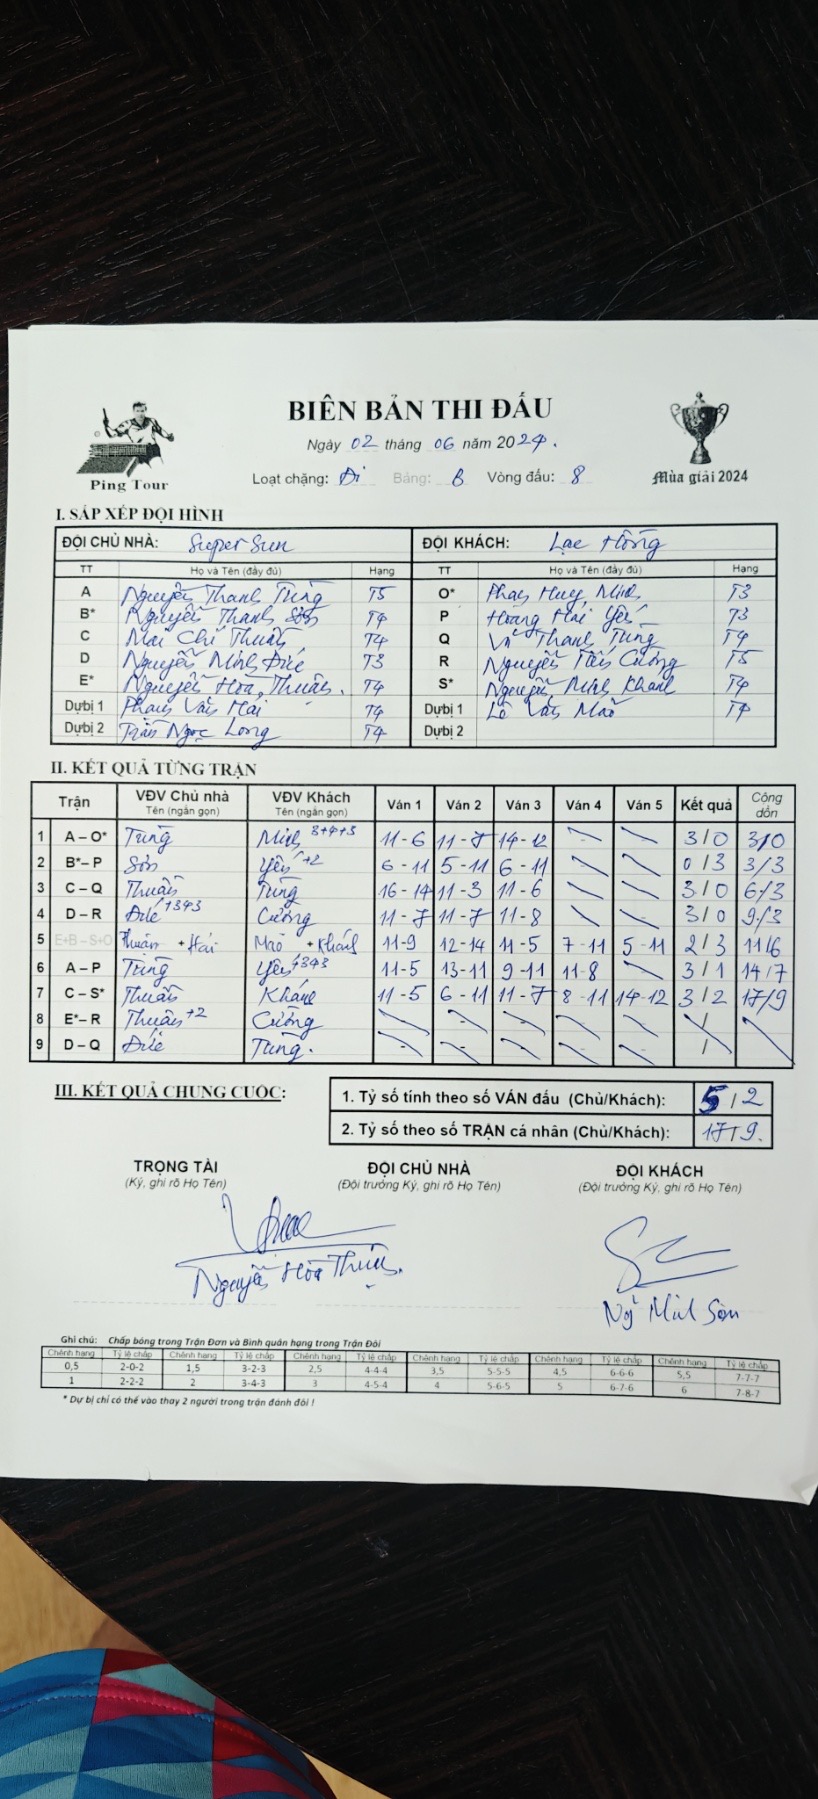 BIÊN BẢN THI ĐẤU
Ngày 02 tháng 06 năm 2024.
Ping Tour
Loạt chặng: Đi Bảng: B Vòng đấu: 8
Mùa giải 2024
I. SẮP XẾP ĐỘI HÌNH
ĐỘI CHỦ NHÀ: Super Sun ĐỘI KHÁCH: Lạc Hồng
TT Họ và Tên (đầy đủ) Hạng TT Họ và Tên (đầy đủ) Hạng
A Nguyễn Thanh Tùng T5 O* Phan Huy Minh T3
B* Nguyễn Thanh Sơn T4 P Hoàng Hải Yến T3
C Mai Chí Thuần T4 Q Võ Thanh Tùng T4
R Nguyễn Tiến Cường T5
D Nguyễn Minh Đức T3
E* Nguyễn Hòa Thuận. T4 S* Nguyễn Minh Khánh T4
Dự bị 1 Phạm Văn Hải T4 Dự bị 1 Lê Văn Mão T4
Dự bị 2 Trần Ngọc Long T4 Dự bị 2
II. KẾT QUẢ TỪNG TRẬN
Trận VĐV Chủ nhà Tên (ngắn gọn) VĐV Khách Tên (ngắn gọn) Ván 1 Ván 2 Ván 3 Ván 4 Ván 5 Kết quả Cộng dồn
1 A – O* Tùng Minh 3+4+3 11-6 11-7 14-12 3/0 3/0
2 B* – P Sơn Yến +2 6-11 5-11 6-11 0/3 3/3
3 C – Q Thuần Tùng 16-14 11-3 11-6 3/0 6/3
4 D – R Đức +343 Cường 11-7 11-7 11-8 3/0 9/3
5 E+B – S+O Thuận + Hải Mão + Khánh 11-9 12-14 11-5 7-11 5-11 2/3 11/6
6 A – P Tùng Yến +343 11-5 13-11 9-11 11-8 3/1 14/7
7 C – S* Thuần Khánh 11-5 6-11 11-7 8-11 14-12 3/2 17/9
8 E* – R Thuận +2 Cường /
9 D – Q Đức Tùng. /
III. KẾT QUẢ CHUNG CUỘC:
1. Tỷ số tính theo số VÁN đấu (Chủ/Khách): 5/2
2. Tỷ số theo số TRẬN cá nhân (Chủ/Khách): 17/9.
TRỌNG TÀI ĐỘI CHỦ NHÀ ĐỘI KHÁCH
(Ký, ghi rõ Họ Tên) (Đội trưởng Ký, ghi rõ Họ Tên) (Đội trưởng Ký, ghi rõ Họ Tên)
Nguyễn Hòa Thuận.
Ngô Minh Sơn
Ghi chú: Chấp bóng trong Trận Đơn và Bình quân hạng trong Trận Đôi
Chênh hạng Tỷ lệ chấp Chênh hạng Tỷ lệ chấp Chênh hạng Tỷ lệ chấp Chênh hạng Tỷ lệ chấp Chênh hạng Tỷ lệ chấp Chênh hạng Tỷ lệ chấp
0,5 2-0-2 1,5 3-2-3 2,5 4-4-4 3,5 5-5-5 4,5 6-6-6 5,5 7-7-7
1 2-2-2 2 3-4-3 3 4-5-4 4 5-6-5 5 6-7-6 6 7-8-7
* Dự bị chỉ có thể vào thay 2 người trong trận đánh đôi !